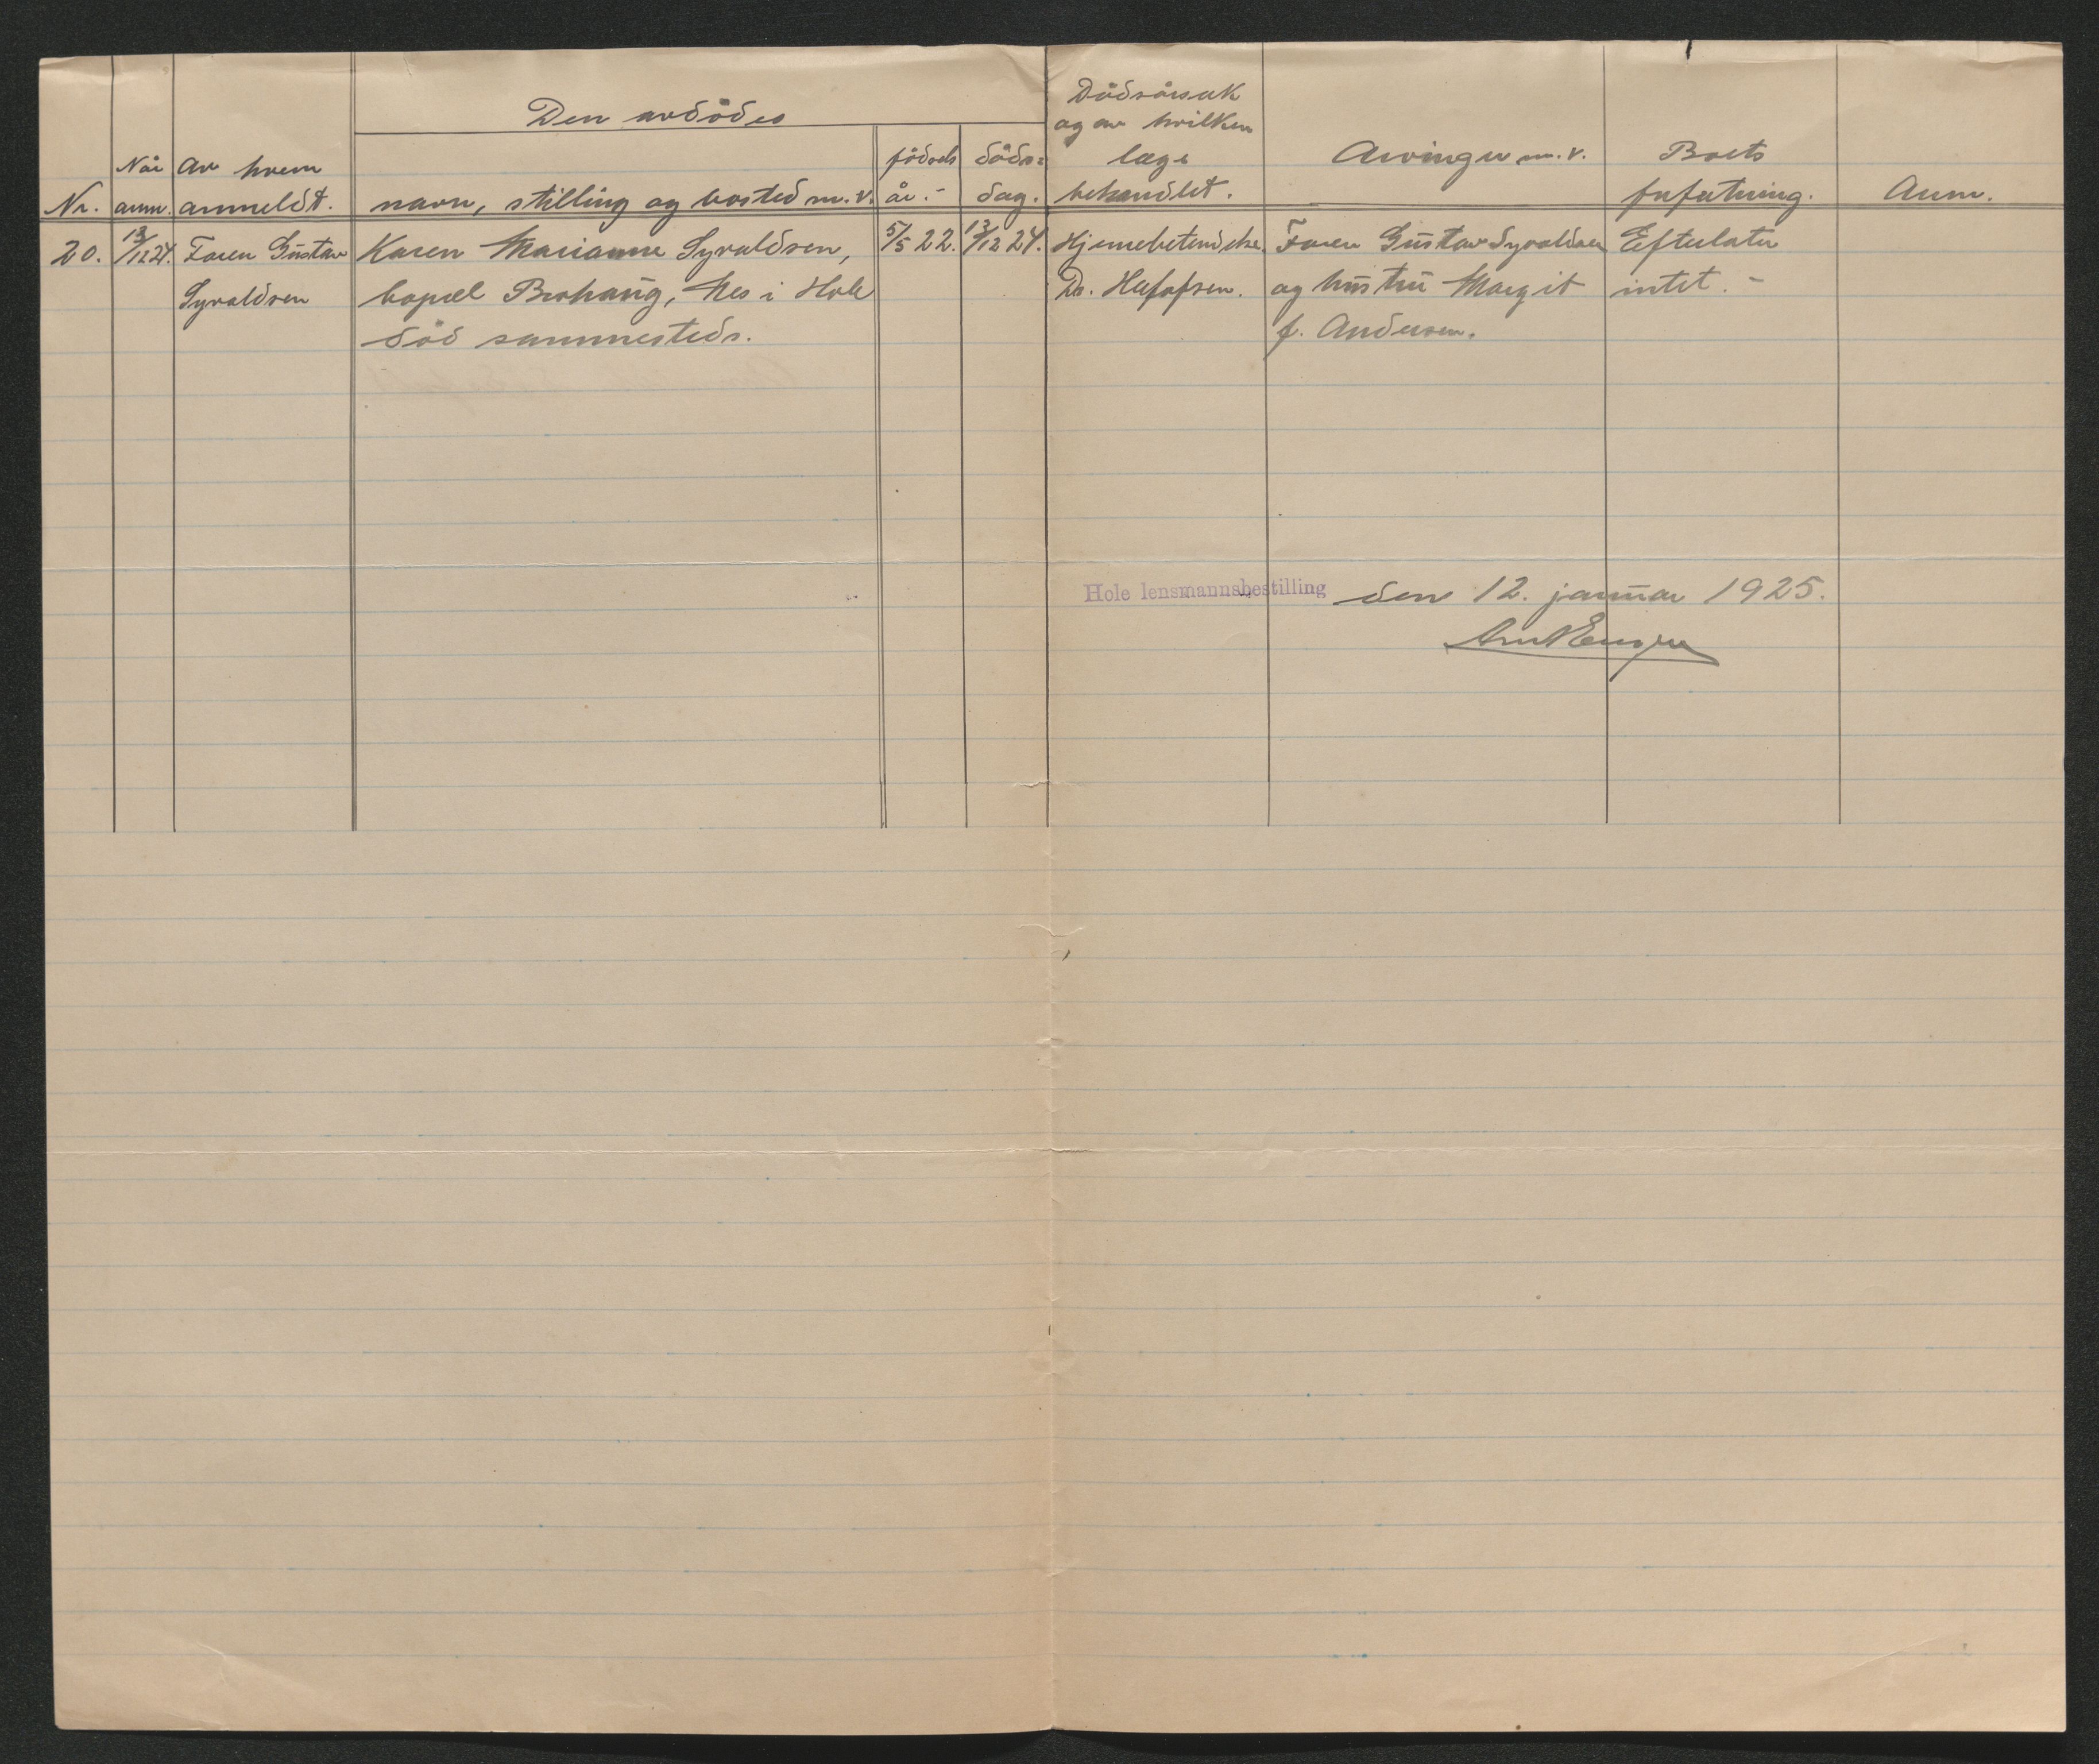 Den avdödes
Nr.
Når
anm.
Av hvem
anmeldt.
navn, stilling og bosted m.v.
födsels
år.-
döds-
dag.
Dödsårsak
og av hvilken
læge
behandlet.
Arvinger m.v.
Boets
forfatning.
Anm.
20.
13/12 24.
Faren Gustav
Syvaldsen
Karen Marianne Syvaldsen,
bopæl Brohaug, Nes i Hole
död sammesteds.
5/5 22.
13/12 24.
Hjernebetendelse.
Dr.
Faren Gustav Syvaldsen
og hustru Margit
f. Andersen.
Efterlater
intet.-
Hole lensmannsbestilling den 12. januar 1925.